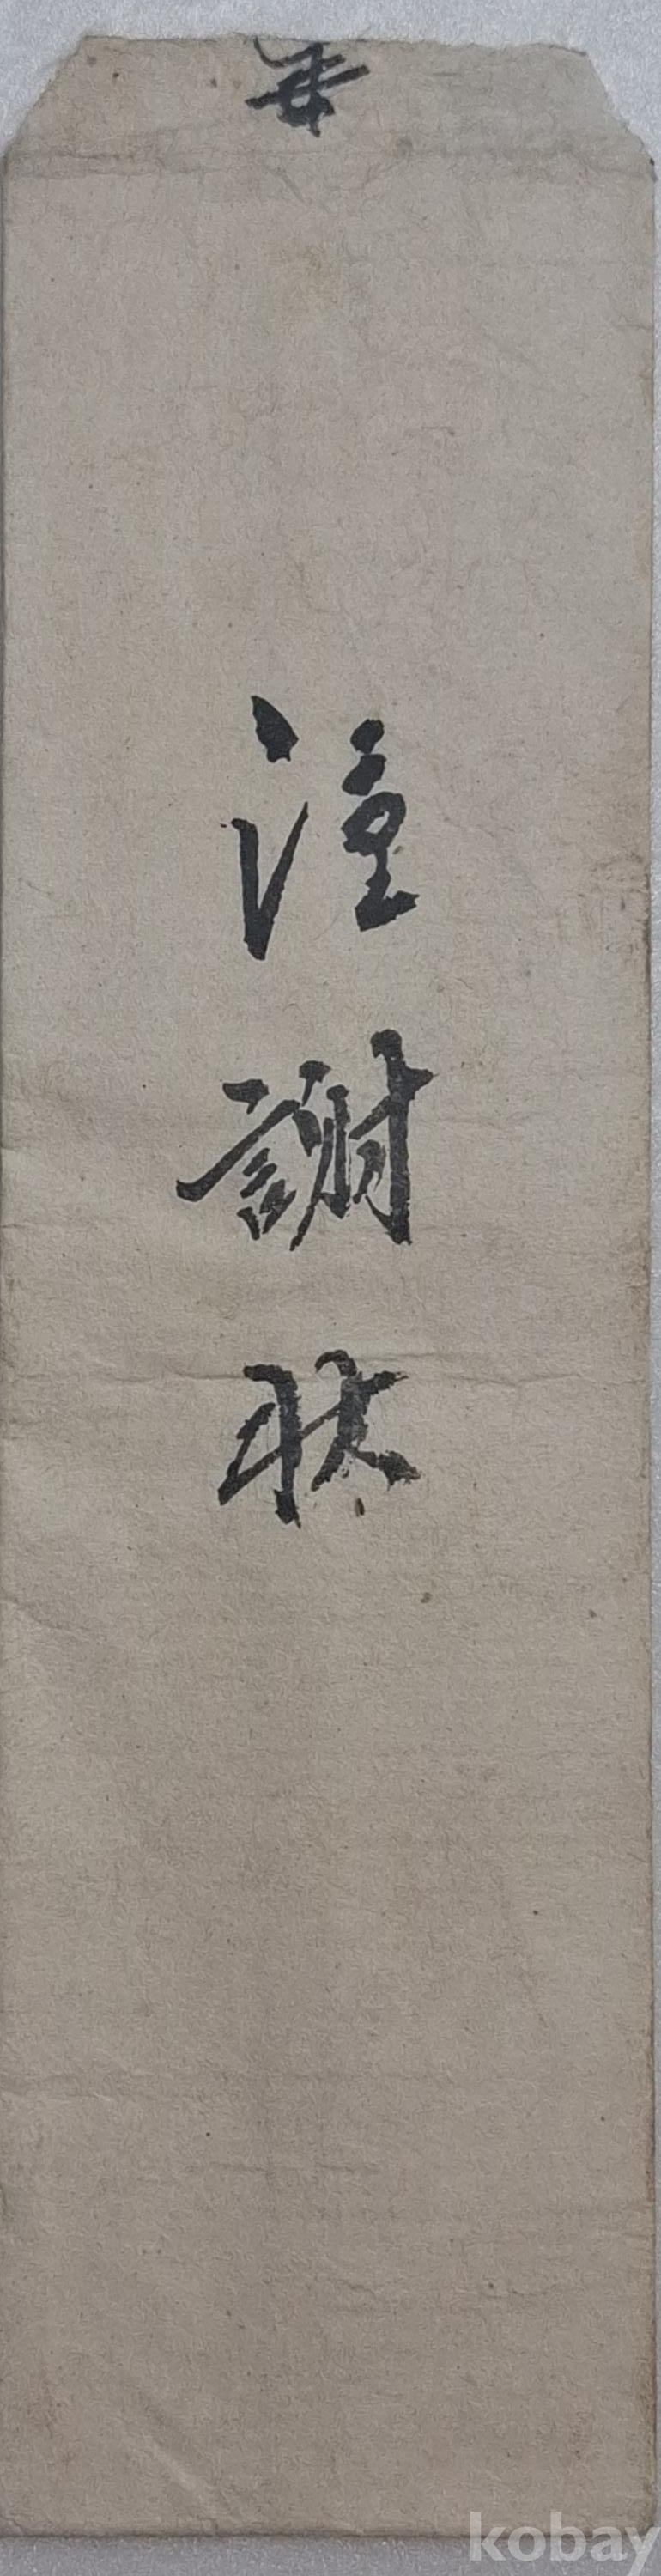 謹謝狀
kobay